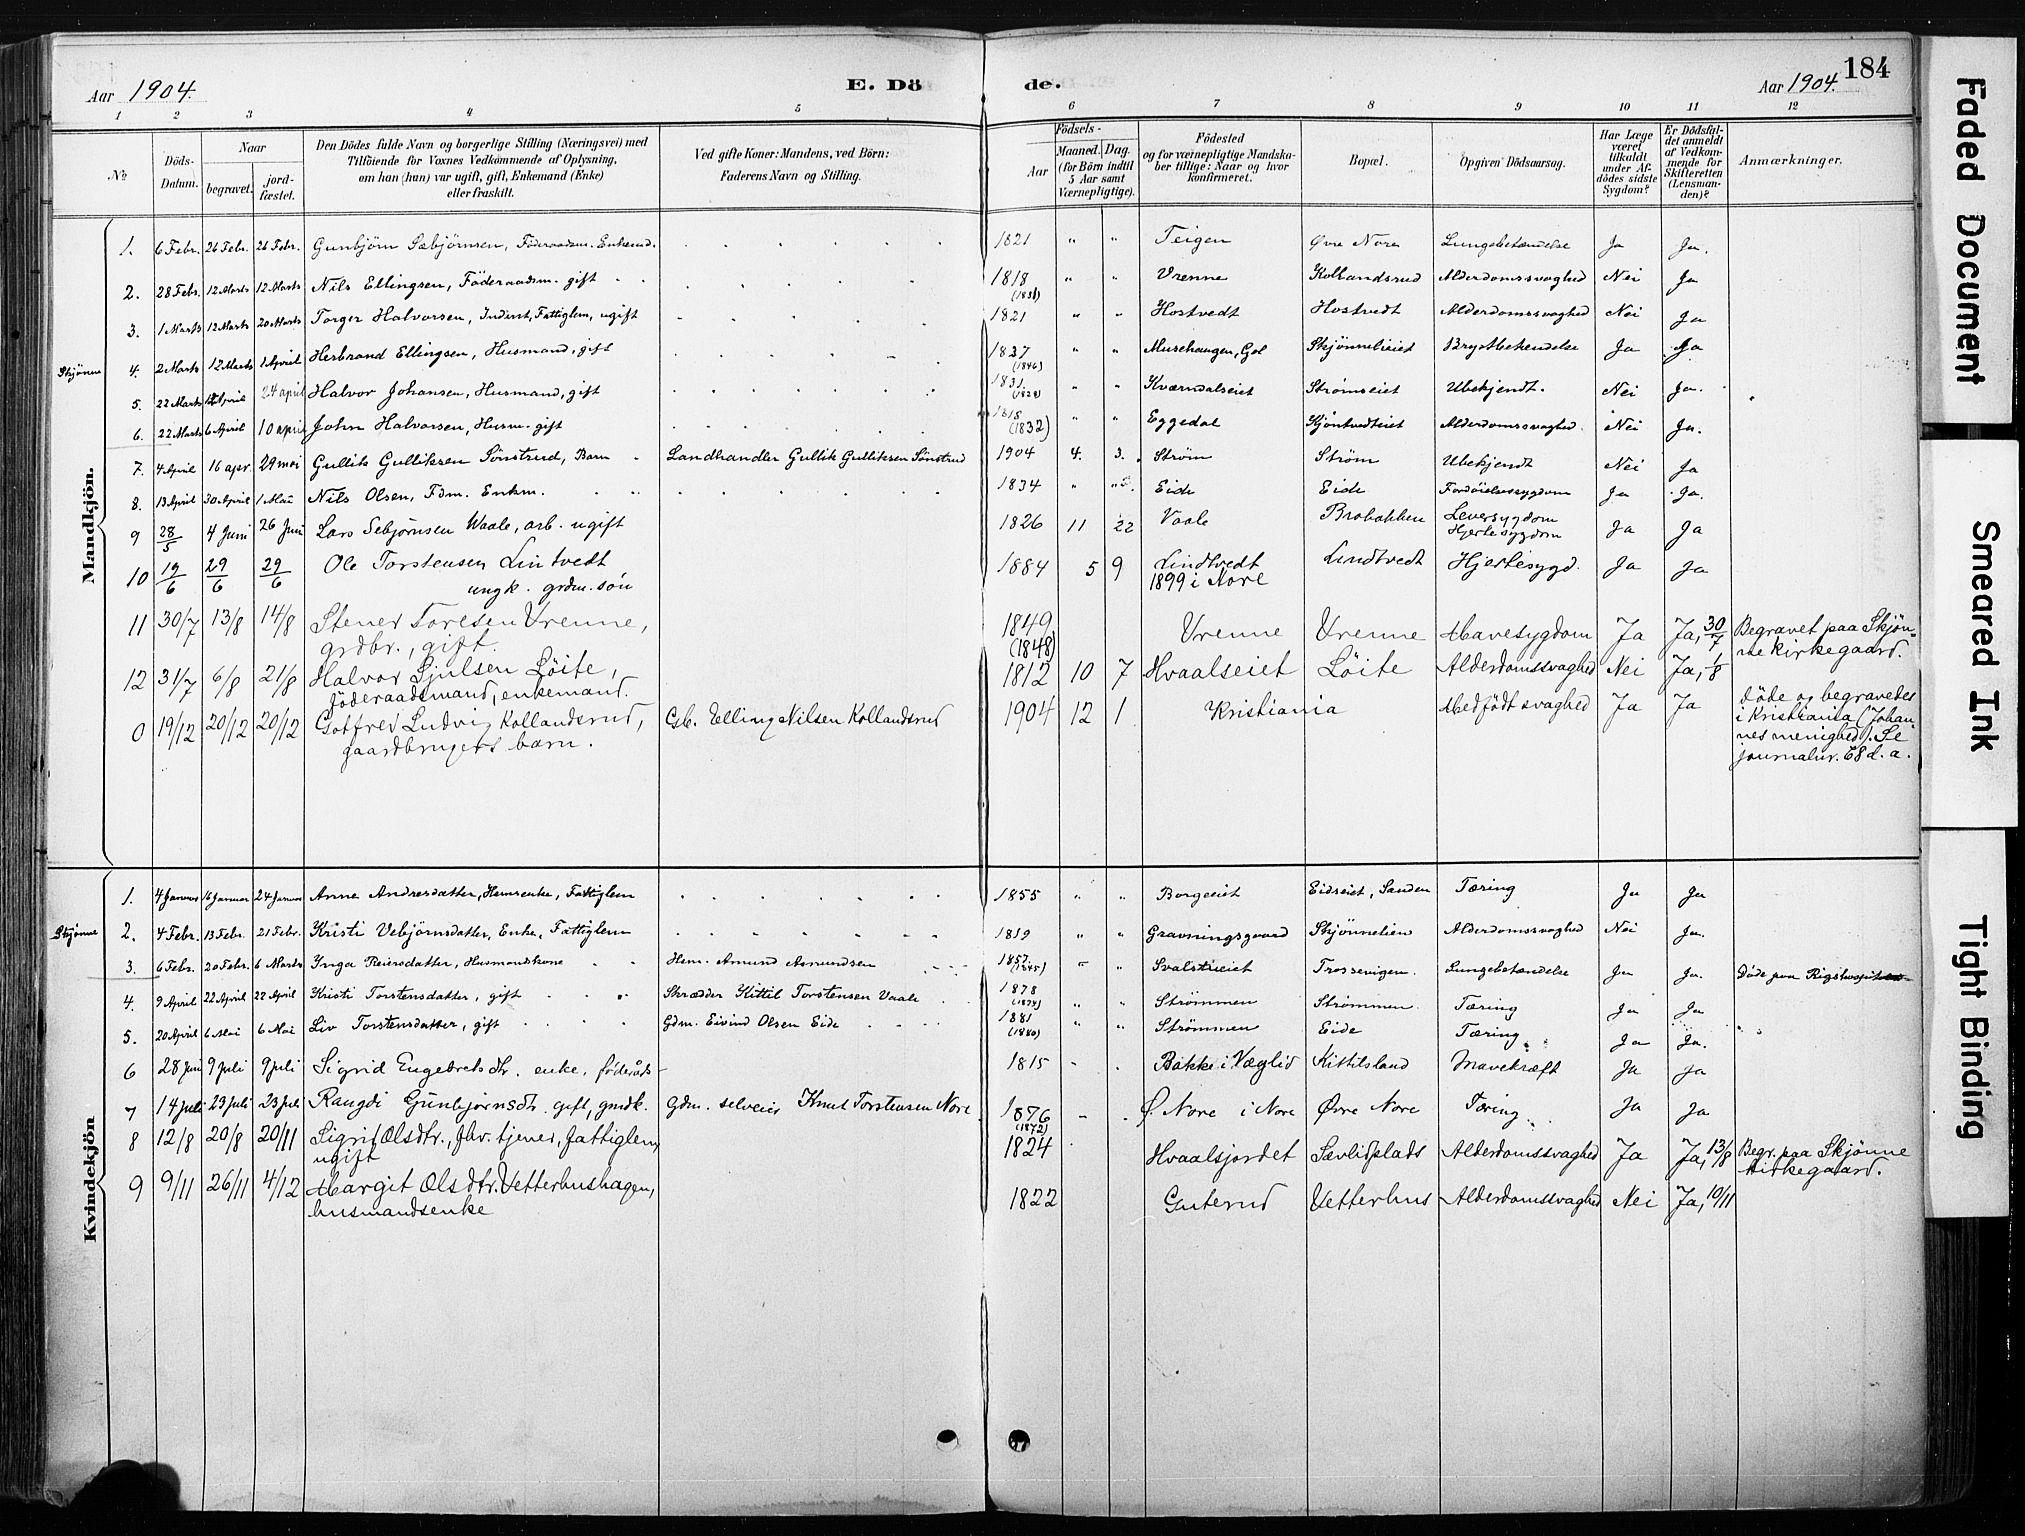 184
Aar 1904. E. Dö de. Aar 1904.
1 2 3 4 5 6 7 8 9 10 11 12
№ Döds-Datum. Naar begravet. jord-fæstet. Den Dödes fulde Navn og borgerlige Stilling (Næringsvei) med Tilföiende for Voxnes Vedkommende af Oplysning, om han (hun) var ugift, gift, Enkemand (Enke) eller fraskilt. Ved gifte Koner: Mandens, ved Börn: Faderens Navn og Stilling. Födsels- Aar Maaned. Dag. (for Börn indtil 5 Aar samt Værnepligtige). Födested og for værnepligtige Mandskaber tillige: Naar og hvor konfirmeret. Bopæl. Opgiven Dödsaarsag. Har Læge været tilkaldt under Afdödes sidste Sygdom? Er Dödsfaldet anmeldt af Vedkommende for Skifteretten (Lensmanden)? Anmærkninger.
Mandkjön.
1. 6 Febr. 26 Febr. 26 Febr. Gunbjörn Sæbjörnsen, Föderaadsm. Enkemd. 1821 " " Teigen Øvre Nore Lungebetændelse Ja Ja.
2. 28 Febr. 12 Marts 12 Marts Nils Ellingsen, Föderaadsm. gift 1818 " " Vrenne Kollandsrud Alderdomssvaghed Nei Ja
3. 1 Marts 12 Marts 20 Marts Torger Halvorsen, Inderst, Fattiglem, ugift 1821 " " Hostvedt Hostvedt Alderdomssvaghed Nei Ja
Skjönne 4. 2 Marts 12 Marts 1 April Herbrand Ellingsen, Husmand, gift 1837 (1846) " " Musehaugen, Gol Skjönneliet Brystbetændelse Ja Ja
5. 22 Marts April 24 april Halvor Johansen, Husmand, gift 1831. (1828) " " Kværndalseiet Strømseiet Ubekjendt. Nei Ja.
6. 22 Marts 6 April 10 april John Halvorsen, Husm. gift 1818 (1832) " " Eggedal Alderdomssvaghed. Nei Ja.
7. 4 April 16 apr. 29 mai Gullik Gulliksen Sönstrud, Barn Landhandler Gullik Gulliksen Sönstrud 1904 4. 3. Ström Ström Ubekjendt Nei Ja
8. 13 April 30 April 1 Mai Nils Olsen, Fdm. Enkm. 1834 " " Eide Eide Fordöielsessygdom Ja Ja.
9 28/5 4 Juni 26 Juni Lars Sebjörnsen Waale, arb. ugift 1826 11 22 Vaale Brobakken Leversygdom Hjertesygdom Ja Ja
10 19/6 29/6 29/6 Ole Torstensen Lintvedt 1884 5 9 Lindtvedt Lindtvedt Hjertesygd. Ja Ja
ungk. grdm. sön 1899 i Nore
11 30/7 13/8 14/8 Stener Toresen Vrenne, 1849 (1848) Vrenne Vrenne Mavesygdom Ja Ja, 30/7 Begravet paa Skjön-
grdbr., gift. ne kirkegaard.
12 31/7 6/8 21/8 Halvor Gjulsen Löite, 1812 10 7 Hvaalseiet Löite Alderdomssvaghed Nei Ja, 1/8
föderaadsmand, enkemand.
0 19/12 20/12 20/12 Gotfred Ludvig Kollandsrud, Gsb. Elling Nilsen Kollandsrud 1904 12 1 Kristiania Medfödt svaghed Ja Ja Döde og begravedes
gaardbrugers barn. i Kristiania (Johan-
nes menighed). Se
journalnr. 68 d. a.
Kvindekjön
1. 4 Januar 16 Januar 24 Januar Anne Andresdatter, Hemsenke, Fattiglem 1855 " " Borgeeiet Eidseiet, Sanden Tæring Ja Ja
Skjönne 2. 4 Febr. 13 Febr. 21 Febr. Kristi Vebjörnsdatter, Enke, Fattiglem 1819 " " Gravningsgaard Skjönnelien Alderdomssvaghed Nei Ja.
3. 6 Febr. 20 Febr. 6 Marts Ynga Reiersdatter, Husmandskone Hem. Amund Asmundsen 1857 (1845) " " Lungebetændelse Ja Ja. Döde paa Rigshospit
4. 9 April 22 April 22 April Kristi Torstensdatter, gift Skrædder Kittil Torstensen Vaale 1878 (1874) " " Strömmen Strömmen Tæring Ja Ja
5. 20 April 6 Mai 6 Mai Liv Torstensdatter, gift Gdm. Eivind Olsen Eide 1881 (1880) " " Strömmen Eide Tæring Ja Ja.
6 28 Juni 9 Juli 9 Juli Sigrid Engebretsdtr. enke, föderåds- 1815 Bakke i Væglid Kittilsland Mavekræft Ja Ja
7 14 Juli 23 Juli 23 Juli Rangdi Gunbjörnsdtr. gift, gmdk. Gdm. selveier Knut Torstensen Nore 1876 (1872) Ø. Nore i Nore Övre Nore Tæring. Ja Ja
8 12/8 20/8 20/11 Sigrid Olsdtr., fhv. tjener, fattiglem, 1824 Hvaalsjordet Sævlidplads Alderdomssvaghed Ja Ja, 13/8 Begr. paa Skjönne
ugift kirkegaard.
9 9/11 26/11 4/12 Margit Olsdtr. Vetterhushagen, 1822 Guterud Vetterhus Alderdomssvaghed Nei Ja, 10/11
husmandsenke
Faded Document
Smeared Ink
Tight Binding